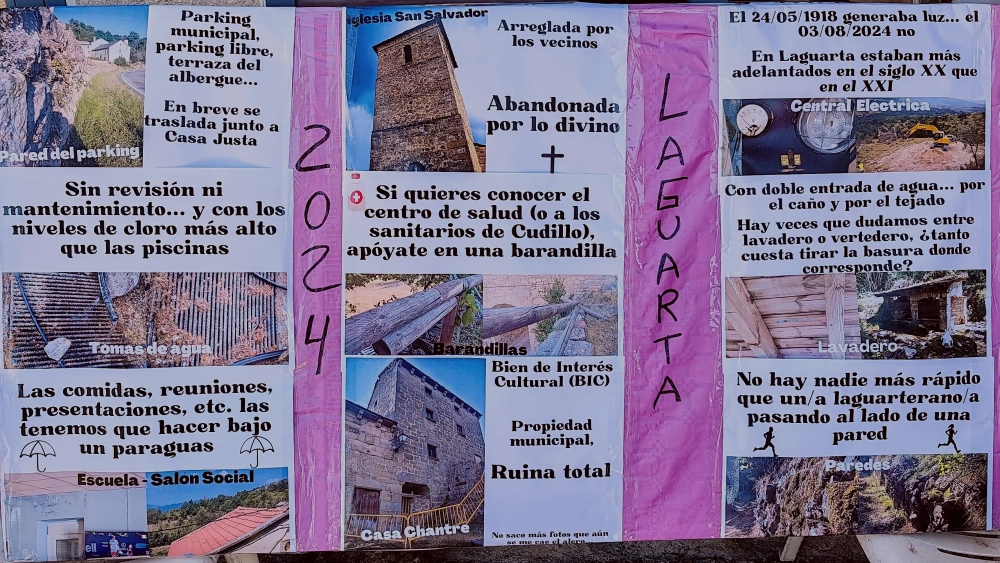 Parking
municipal,
parking libre,
terraza del
albergue...
En breve se
traslada junto a
Casa Justa
Pared del parking
Sin revisión ni
mantenimiento... y con los
niveles de cloro más alto
que las piscinas
Tomas de agua
Las comidas, reuniones,
presentaciones, etc. las
tenemos que hacer bajo
un paraguas
Escuela - Salón Social
2024
Iglesia San Salvador
Arreglada por
los vecinos
Abandonada
por lo divino
Si quieres conocer el
centro de salud (o a los
sanitarios de Cudillo),
apóyate en una barandilla
Barandillas
Bien de Interés
Cultural (BIC)
Propiedad
municipal,
Ruina total
Casa Chantre
No saco más fotos que aún
se me cae el alero
LAGUARTA
El 24/05/1918 generaba luz... el
03/08/2024 no
En Laguarta estaban más
adelantados en el siglo XX que
en el XXI
Central Eléctrica
Con doble entrada de agua... por
el caño y por el tejado
Hay veces que dudamos entre
lavadero o vertedero, ¿tanto
cuesta tirar la basura donde
corresponde?
Lavadero
No hay nadie más rápido
que un/a laguarterano/a
pasando al lado de una
pared
Paredes